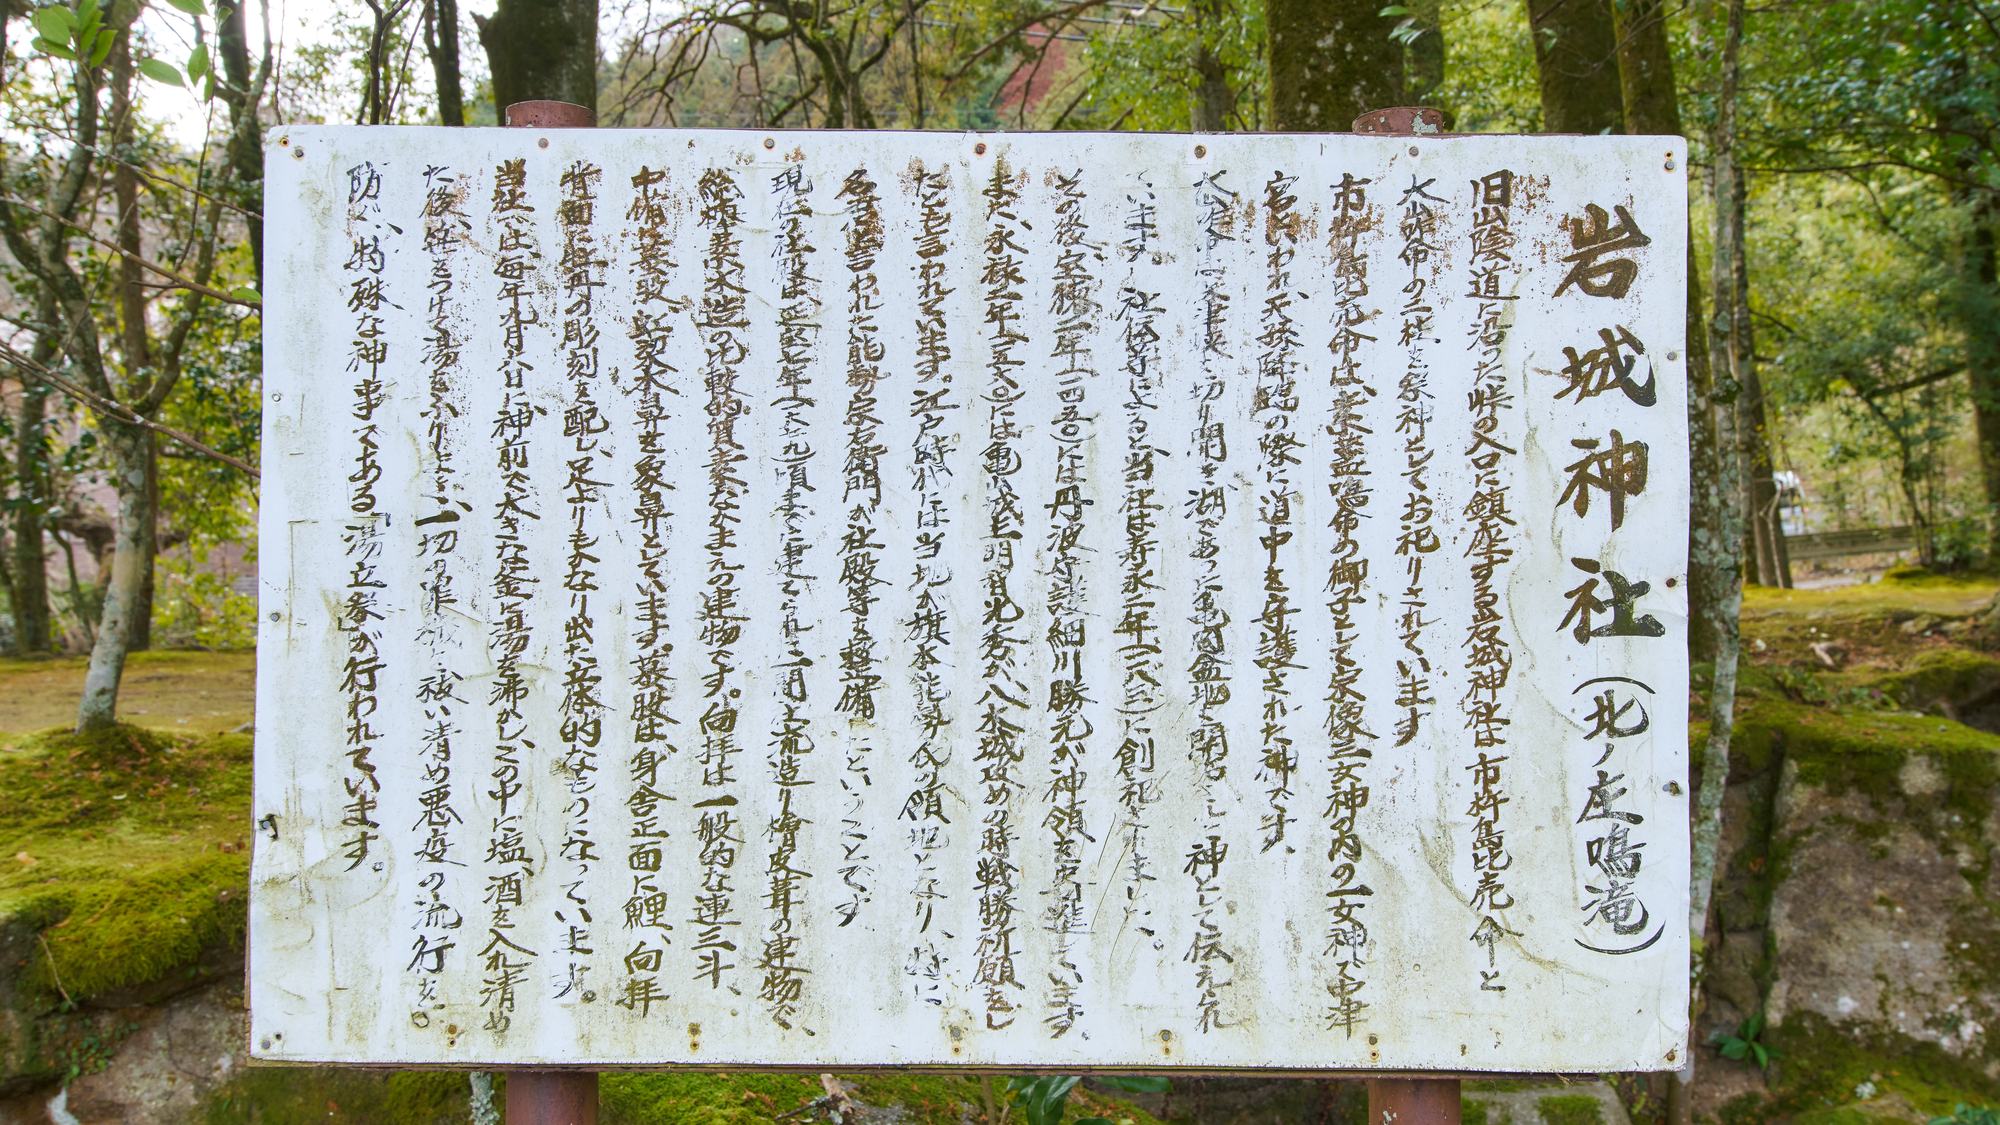 岩城神社(北ノ庄鳴滝)
旧山陰道に沿った峠の入口に鎮座する岩城神社は市杵島比売命と
大山咋命の二社を祭神としてお祀りされています
市杵島比売命は、素盞嗚命の御子として宗像三女神の内の一女神で中津
宮といわれ、天孫降臨の際に道中を守護された神です。
大山咋命は 切り開き湖であった亀岡盆地を開拓された神として伝えられ
ています。社伝等によると当社は寿永二年(一一八三)に創祀されました。
その後宝徳二年(一四五〇)には丹波守護細川勝元が神領を寄進しています。
また、永禄二年(一五六〇)には亀山城主明智光秀が八木城攻めの時戦勝祈願をし
たとも言われています。江戸時代には当地が旗本能勢氏の領地となり、特に
名君と言われた能勢宗右衛門が社殿等を整備したということです。
現在の本殿は、正徳 年(一七一九)頃までに建てられた一間社流造り檜皮葺の建物で、
総欅素木造の比較的質素なかまえの建物です。向拝は一般的な連三斗、
中備は蟇股、紅梁木鼻を象鼻としています。蟇股は、身舎正面に鯉、向拝
背面に牡丹の彫刻を配し、足よりもかなり出た立体的なものになっています。
当社では毎年九月六日に神前で大きな釜に湯を沸かし、この中に塩、酒を入れ清め
た後、笹をつけて湯をふりまき、一切の罪穢を祓い清め悪疫の流行を。
防ぐ、特殊な神事である「湯立祭」が行われています。